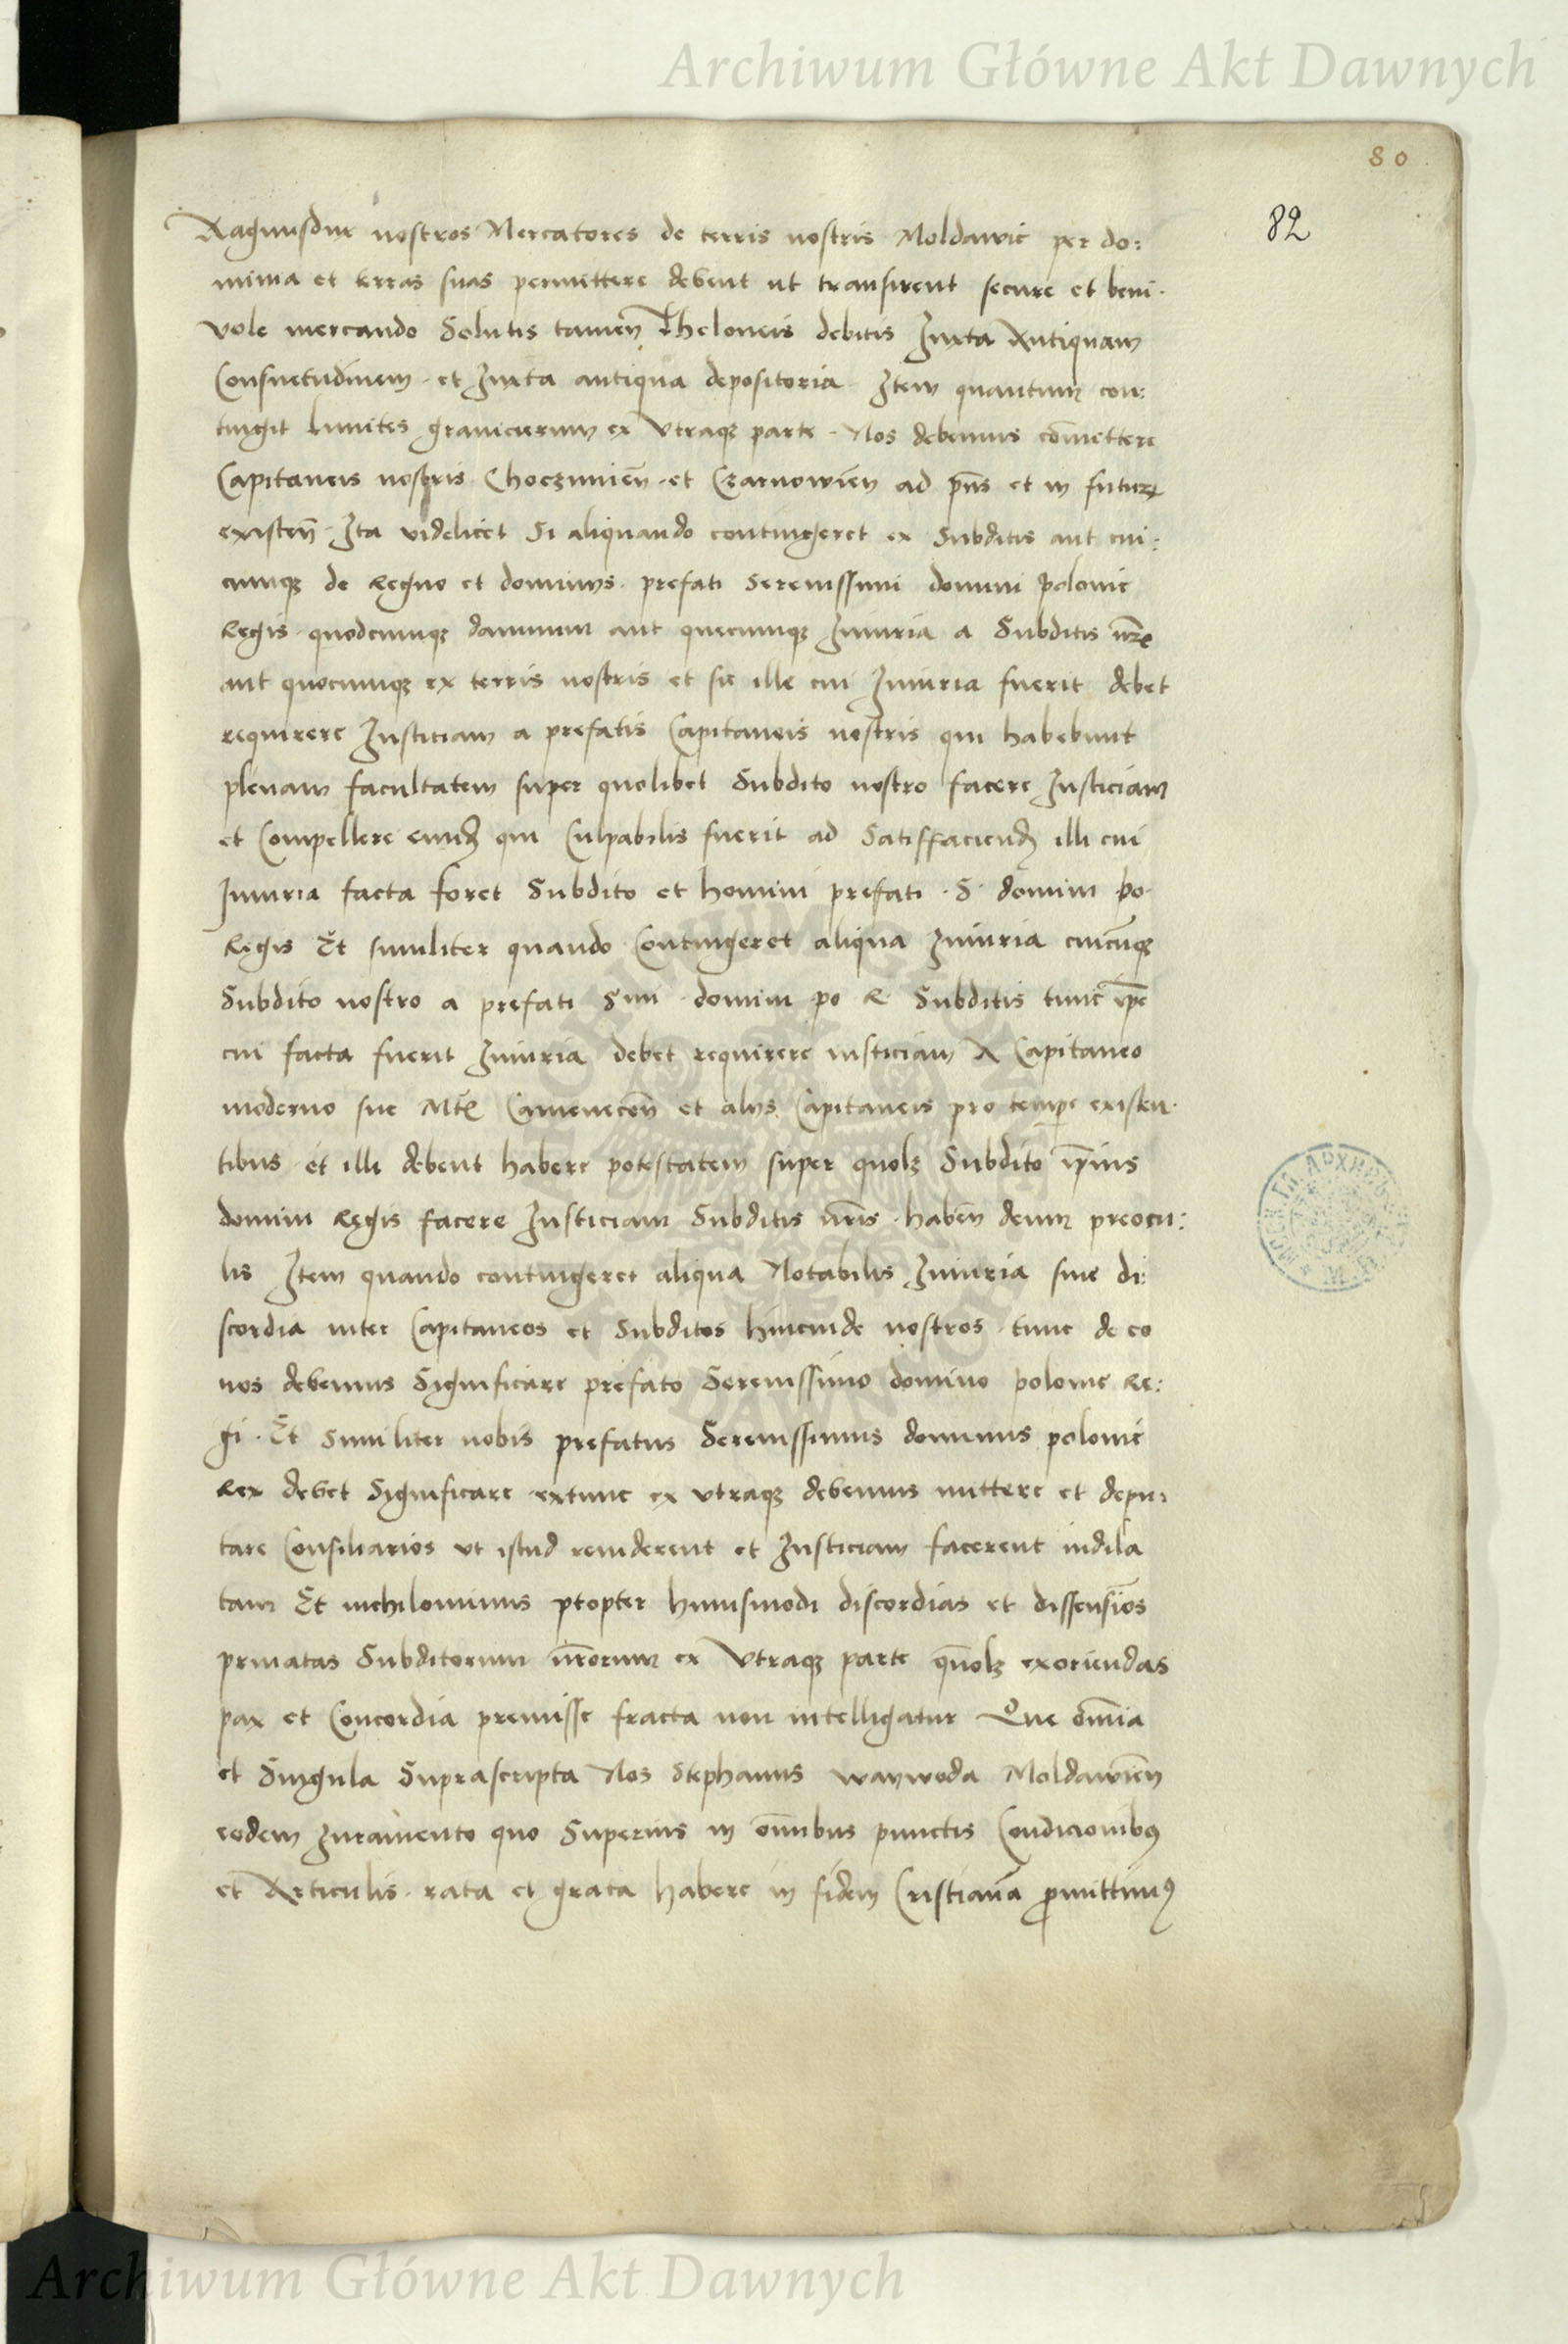 Archiwum Główne Akt Dawnych
80
82
nostros Mercatores de terris nostris Moldawie per do:
minia et terras suas permittere debent ut transirent secure et beni.
vole mercando Solutis tamen Theloneis debitis Iuxta Antiquam
Consuetudinem. et Iuxta antiqua depositoria. Item quantum con:
tingit limites granicierum ex Vtraqꝫ parte. Nos debemus com̄ittere
Capitaneis nostris Choczimien̄. et Czarnowien̄ ad pn̄s et in futurꝝ
existen̄. Ita videlicet Si aliquando contingeret ex Subditis aut cui:
cumqꝫ de Regno et dominijs. prefati Serenissimi domini Polonie
Regis. quodcumqꝫ damnum aut quecumqꝫ Iniuria a Subditis nr̄e
aut quocumqꝫ ex terris nostris et sic ille cui Iniuria fuerit debet
requirere Iusticiam a prefatis Capitaneis nostris qui habebunt
plenam facultatem super quolibet Subdito nostro facere Iusticiam
et Compellere eundꝫ qui Culpabilis fuerit ad Satisffaciendꝫ illi cui
Iniuria facta foret Subdito et homini prefati. S. domini po.
Regis Et similiter quando Contingeret aliqua Iniuria cuicūqꝫ
Subdito nostro a prefati Smi. domini po R Subditis tunc ip̄e
cui facta fuerit Iniuria debet requirere iusticiam A Capitaneo
moderno sue Mt̄e Camenecen̄ et alijs Capitaneis pro temp̱e existen.
tibus. et illi debent habere potestatem super quolꝫ Subdito ip̄ius
domini Regis facere Iusticiam Subditis nr̄is. haben̄ deum preocu:
lis Item quando contingeret aliqua Notabilis Iniuria siue di:
scordia inter Capitaneos et Subditos hincinde nostros. tunc de eo
nos debemus Significare prefato Serenissimo domino polonie Re:
gi. Et Similiter nobis prefatus Serenissimus dominus polonie
Rex debet Significare extunc ex vtraqꝫ debemus mittere et depu:
tare Consiliarios vt istud reuiderent et Iusticiam facerent indila
tam Et nichilominus propter huiusmodi discordias et dissensio̅s
priuatas Subditorum nr̄orum ex Vtraqꝫ parte qn̄olꝫ exoriendas
pax et Concordia premisse fracta non intelligatur Que om̄ia
et Singula Suprascripta Nos Stephanus waywoda Moldawien̄
eodem Iuramento quo Superius in om̄ibus punctis Condicionibꝰ
et Articulis. rata et grata habere in fidem Cristianā ꝓmittimꝰ
Archiwum Główne Akt Dawnych